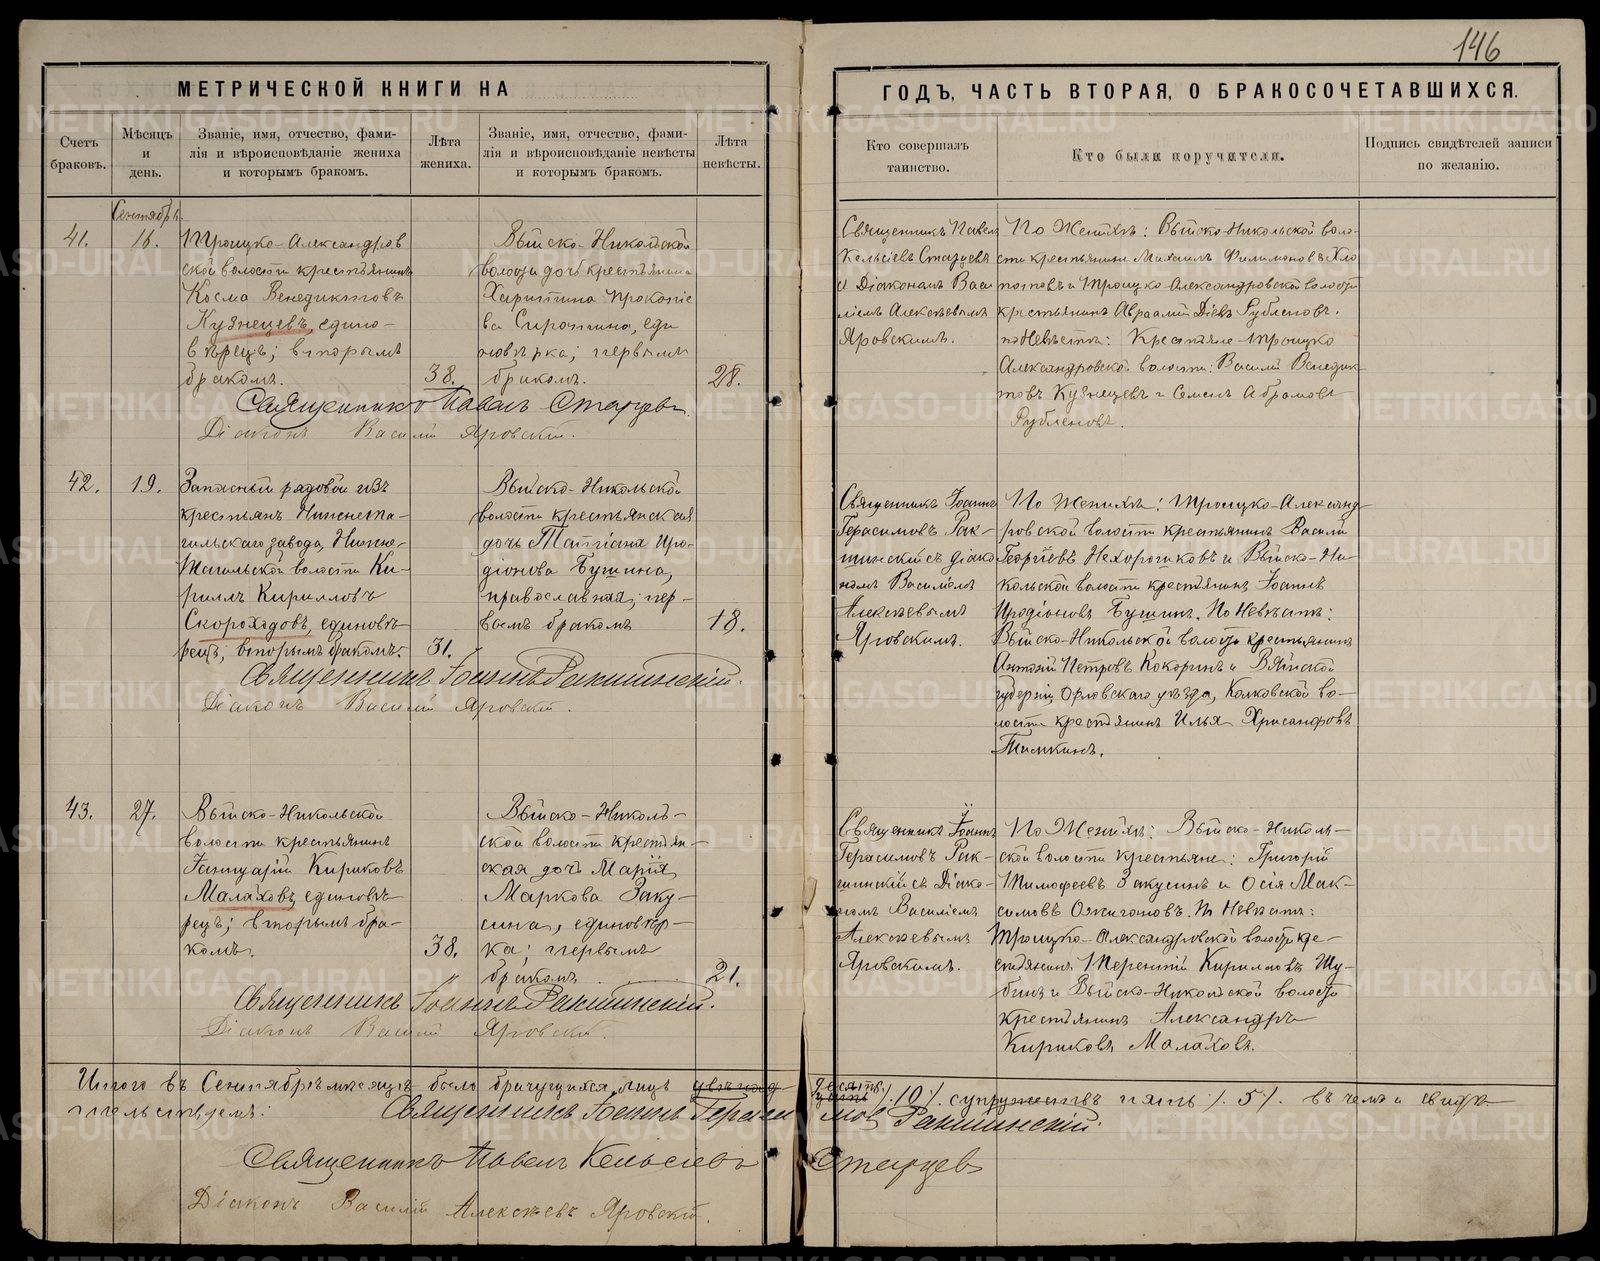 146
МЕТРИЧЕСКОЙ КНИГИ НА
ГОДЪ, ЧАСТЬ ВТОРАЯ, О БРАКОСОЧЕТАВШИХСЯ.
Счетъ
браковъ.
Мѣсяцъ
и
день.
Званіе, имя, отчество, фами-
лія и вѣроисповѣданіе жениха
и которымъ бракомъ.
Лѣта
жениха.
Званіе, имя, отчество, фами-
лія и вѣроисповѣданіе невѣсты
и которымъ бракомъ.
Лѣта
невѣсты.
Кто совершалъ
таинство.
Кто были поручители.
Подпись свидѣтелей записи
по желанію.
Сентябрь.
41.
16.
Троицко-Александров
ской волости крестьянинъ
Косма Венедиктовъ
Кузнецевъ, едино-
вѣрецъ; вторымъ
бракомъ.
38.
Выйско-Никольской
волости дочь крестьянина
Харитина Прокопіе
ва Сиротина, еди
новѣрка; первымъ
бракомъ.
28.
Священникъ Павелъ Старцевъ.
Діаконъ Василій Яровскій.
Священникъ Павелъ
Кельсіевъ Старцевъ
и Діакономъ Васи
ліемъ Алексѣевымъ
Яровскимъ.
По Женихѣ: Выйско-Никольской воло-
сти крестьянинъ Михаилъ Филимоновъ Хло
потовъ и Троицко-Александровской волости
крестьянинъ Авраамій Діевъ Рубленовъ.
по Невѣстѣ: Крестьяне Троицко
Александровской волости: Василій Венедик
товъ Кузнецевъ и Семенъ Абрамовъ
Рубленовъ.
42.
19.
Запасный рядовой изъ
крестьянъ Нижнета-
гильскаго завода, Нижне-
Тагильской волости Ки-
риллъ Кирилловъ
Скороходовъ, единовѣ-
рецъ; вторымъ бракомъ.
31.
Выйско-Никольской
волости крестьянская
дочь Татіана Иро-
діонова Бушина,
православная; пер-
вымъ бракомъ
18.
Священникъ Іоаннъ Ракшинскій.
Діаконъ Василій Яровскій.
Священникъ Іоаннъ
Герасимовъ Рак-
шинскій съ діако
номъ Василіемъ
Алексѣевымъ
Яровскимъ.
По Женихѣ: Троицко-Александ-
ровской волости крестьянинъ Василій
Георгіевъ Нехорошковъ и Выйско-Ни-
кольской волости крестьянинъ Іоаннъ
Иродіоновъ Бушинъ. По Невѣстѣ:
Выйско-Никольской волости крестьянинъ
Антоній Петровъ Кокоринъ и Вятской
губерніи, Орловскаго уѣзда, Колковской во-
лости крестьянинъ Илья Хрисанфовъ
Тимкинъ.
43.
27.
Выйско-Никольской
волости крестьянинъ
Іаннуарій Кириковъ
Малаховъ, единовѣ-
рецъ; вторымъ бра-
комъ.
38.
Выйско-Николь-
ской волости крестьян-
ская дочь Марія
Маркова Заку-
сина, единовѣр-
ка; первымъ
бракомъ
21.
Священникъ Іоаннъ Ракшинскій.
Діаконъ Василій Яровскій.
Священникъ Іоаннъ
Герасимовъ Рак-
шинскій съ Діако-
номъ Василіемъ
Алексѣевымъ
Яровскимъ.
По Женихѣ: Выйско-Николь-
ской волости крестьяне: Григорій
Тимофеевъ Закусинъ и Осія Мак-
симовъ Ожигановъ. По Невѣстѣ:
Троицко-Александровской волости кре-
стьянинъ Терентій Кирилловъ Шу-
бинъ и Выйско-Никольской волости
крестьянинъ Александръ
Кириковъ Малаховъ.
Итого въ Сентябрѣ мѣсяцѣ было брачущихся лицъ десять /.10./. супружествъ пять /.5/. въ чемъ и свидѣ-
тельствуемъ: Священникъ Іоаннъ Герасимовъ Ракшинскій.
Священникъ Павелъ Кельсіевъ Старцевъ
Діаконъ Василій Алексѣевъ Яровскій.
METRIKI.GASO-URAL.RU